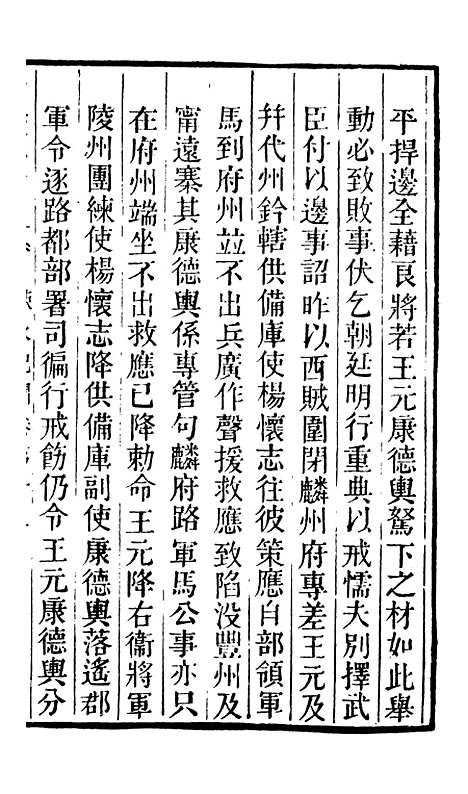 平捍邊全藉良將若王元康德輿駑下之材如此舉
動必致敗事伏乞朝廷明行重典以戒懦夫別擇武
臣付以邊事詔昨以西賊圍閉麟州府專差王元及
幷代州鈐轄供備庫使楊懷志往彼策應自部領軍
馬到府州並不出兵廣作聲援救應致陷没豐州及
甯遠寨其康德輿係專管句麟府路軍馬公事亦只
在府州端坐不出救應已降勅命王元降右衞將軍
陵州團練使楊懷志降供備庫副使康德輿落遙郡
軍令逐路都部署司徧行戒飭仍令王元康德輿分